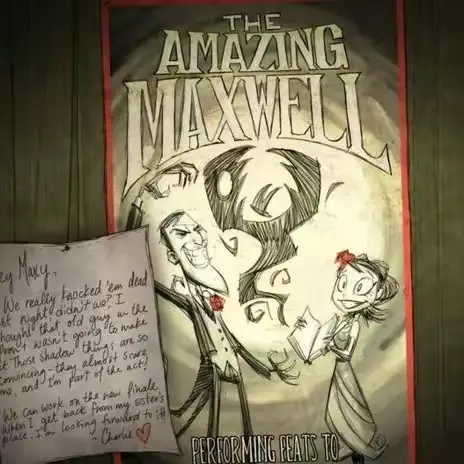 THE
AMAZING
MAXWELL
ey Maxy,
We really knocked 'em dead
st night didn't we? I
hought that old guy in the
front wasn't going to make
t. Those shadow things are so
convincing - they almost scare
me, and I'm part of the act!
We can work on the new finale
when I get back from my sister's
place. I'm looking forward to it!
~ Charlie
PERFORMING FEATS TO